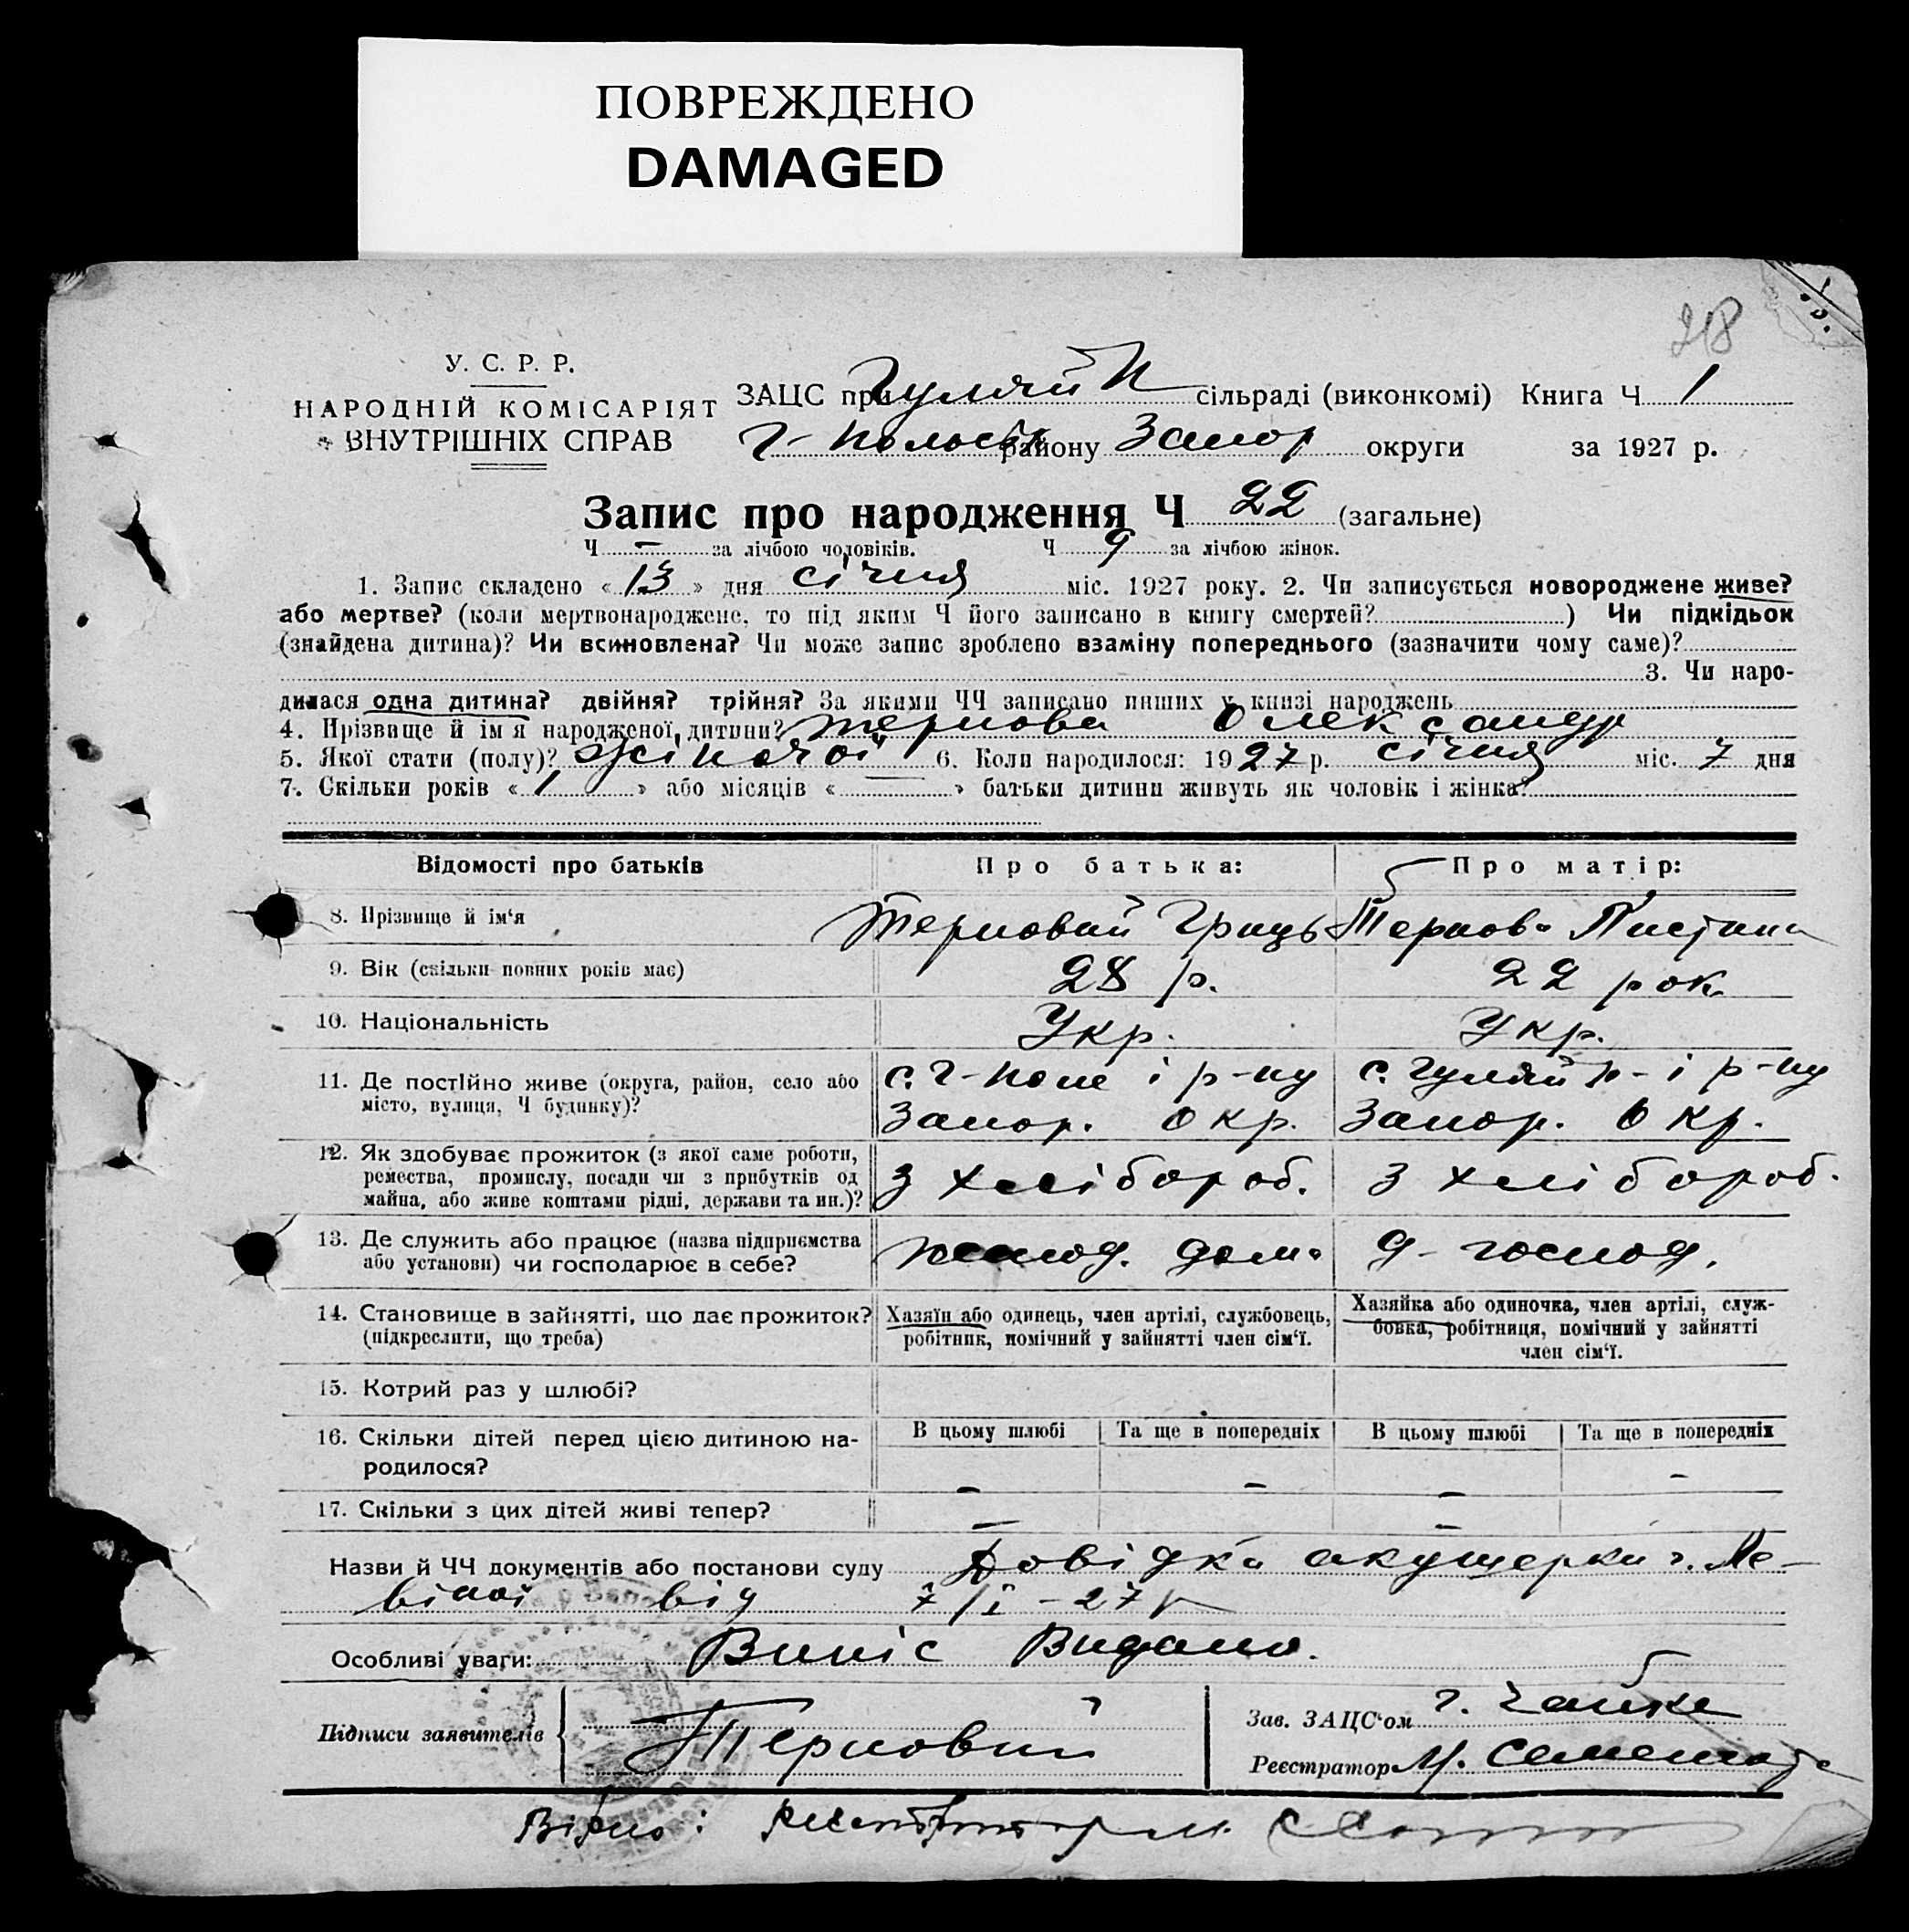 ПОВРЕЖДЕНО
DAMAGED
218
У. С. Р. Р.
НАРОДНІЙ КОМІСАРІЯТ
ВНУТРІШНІХ СПРАВ
ЗАЦС при Гуляй П сільраді (виконкомі) Книга Ч 1
Г-Польськ району Запор округи за 1927 р.
Запис про народження Ч 22 (загальне)
Ч - за лічбою чоловіків. Ч 9 за лічбою жінок.
1. Запис складено « 13 » дня січня міс. 1927 року. 2. Чи записується новороджене живе?
або мертве? (коли мертвонароджене, то під яким Ч його записано в книгу смертей? ) Чи підкідьок
(знайдена дитина)? Чи всиновлена? Чи може запис зроблено взаміну попереднього (зазначити чому саме)?
3. Чи наро-
дилася одна дитина? двійня? трійня? За якими ЧЧ записано инших у книзі народжень
4. Прізвище й ім я народженої дитини? Тернова Олександр
5. Якої стати (полу)? жіночої 6. Коли народилося: 1927 р. січня міс. 7 дня
7. Скільки років « 1 » або місяців « — » батьки дитини живуть як чоловік і жінка?
Відомості про батьків Про батька: Про матір:
8. Прізвище й ім‘я Терновий Гриць Тернова Пистина
9. Вік (скільки повних років має) 28 р. 22 рок.
10. Національність Укр. Укр.
11. Де постійно живе (округа, район, село або
місто, вулиця, Ч будинку)?
с. Г-Поле і р-ну
Запор. окр.
с. Гуляй п- і р-ну
Запор. окр.
12. Як здобуває прожиток (з якої саме роботи,
ремества, промислу, посади чи з прибутків од
майна, або живе коштами рідні, держави та ин.)?
з хлібороб. з хлібороб.
13. Де служить або працює (назва підприємства
або установи) чи господарює в себе?
дома д- господ.
14. Становище в зайнятті, що дає прожиток?
(підкреслити, що треба)
Хазяїн або одинець, член артілі, службовець,
робітник, помічний у зайнятті член сім‘ї.
Хазяйка або одиночка, член артілі, служ-
бовка, робітниця, помічний у зайнятті
член сім‘ї.
15. Котрий раз у шлюбі?
16. Скільки дітей перед цією дитиною на-
родилося?
В цьому шлюбі Та ще в попередніх В цьому шлюбі Та ще в попередніх
– – – –
17. Скільки з цих дітей живі тепер?
– –
Назви й ЧЧ документів або постанови суду Довідка акушерки г. Ле-
віної від 7/І-27 р
Особливі уваги: Випіс Видано.
Підписи заявителів Терновий
Зав. ЗАЦС‘ом г. Чайка
Реєстратор М.
Вірно: Реєстратор М.